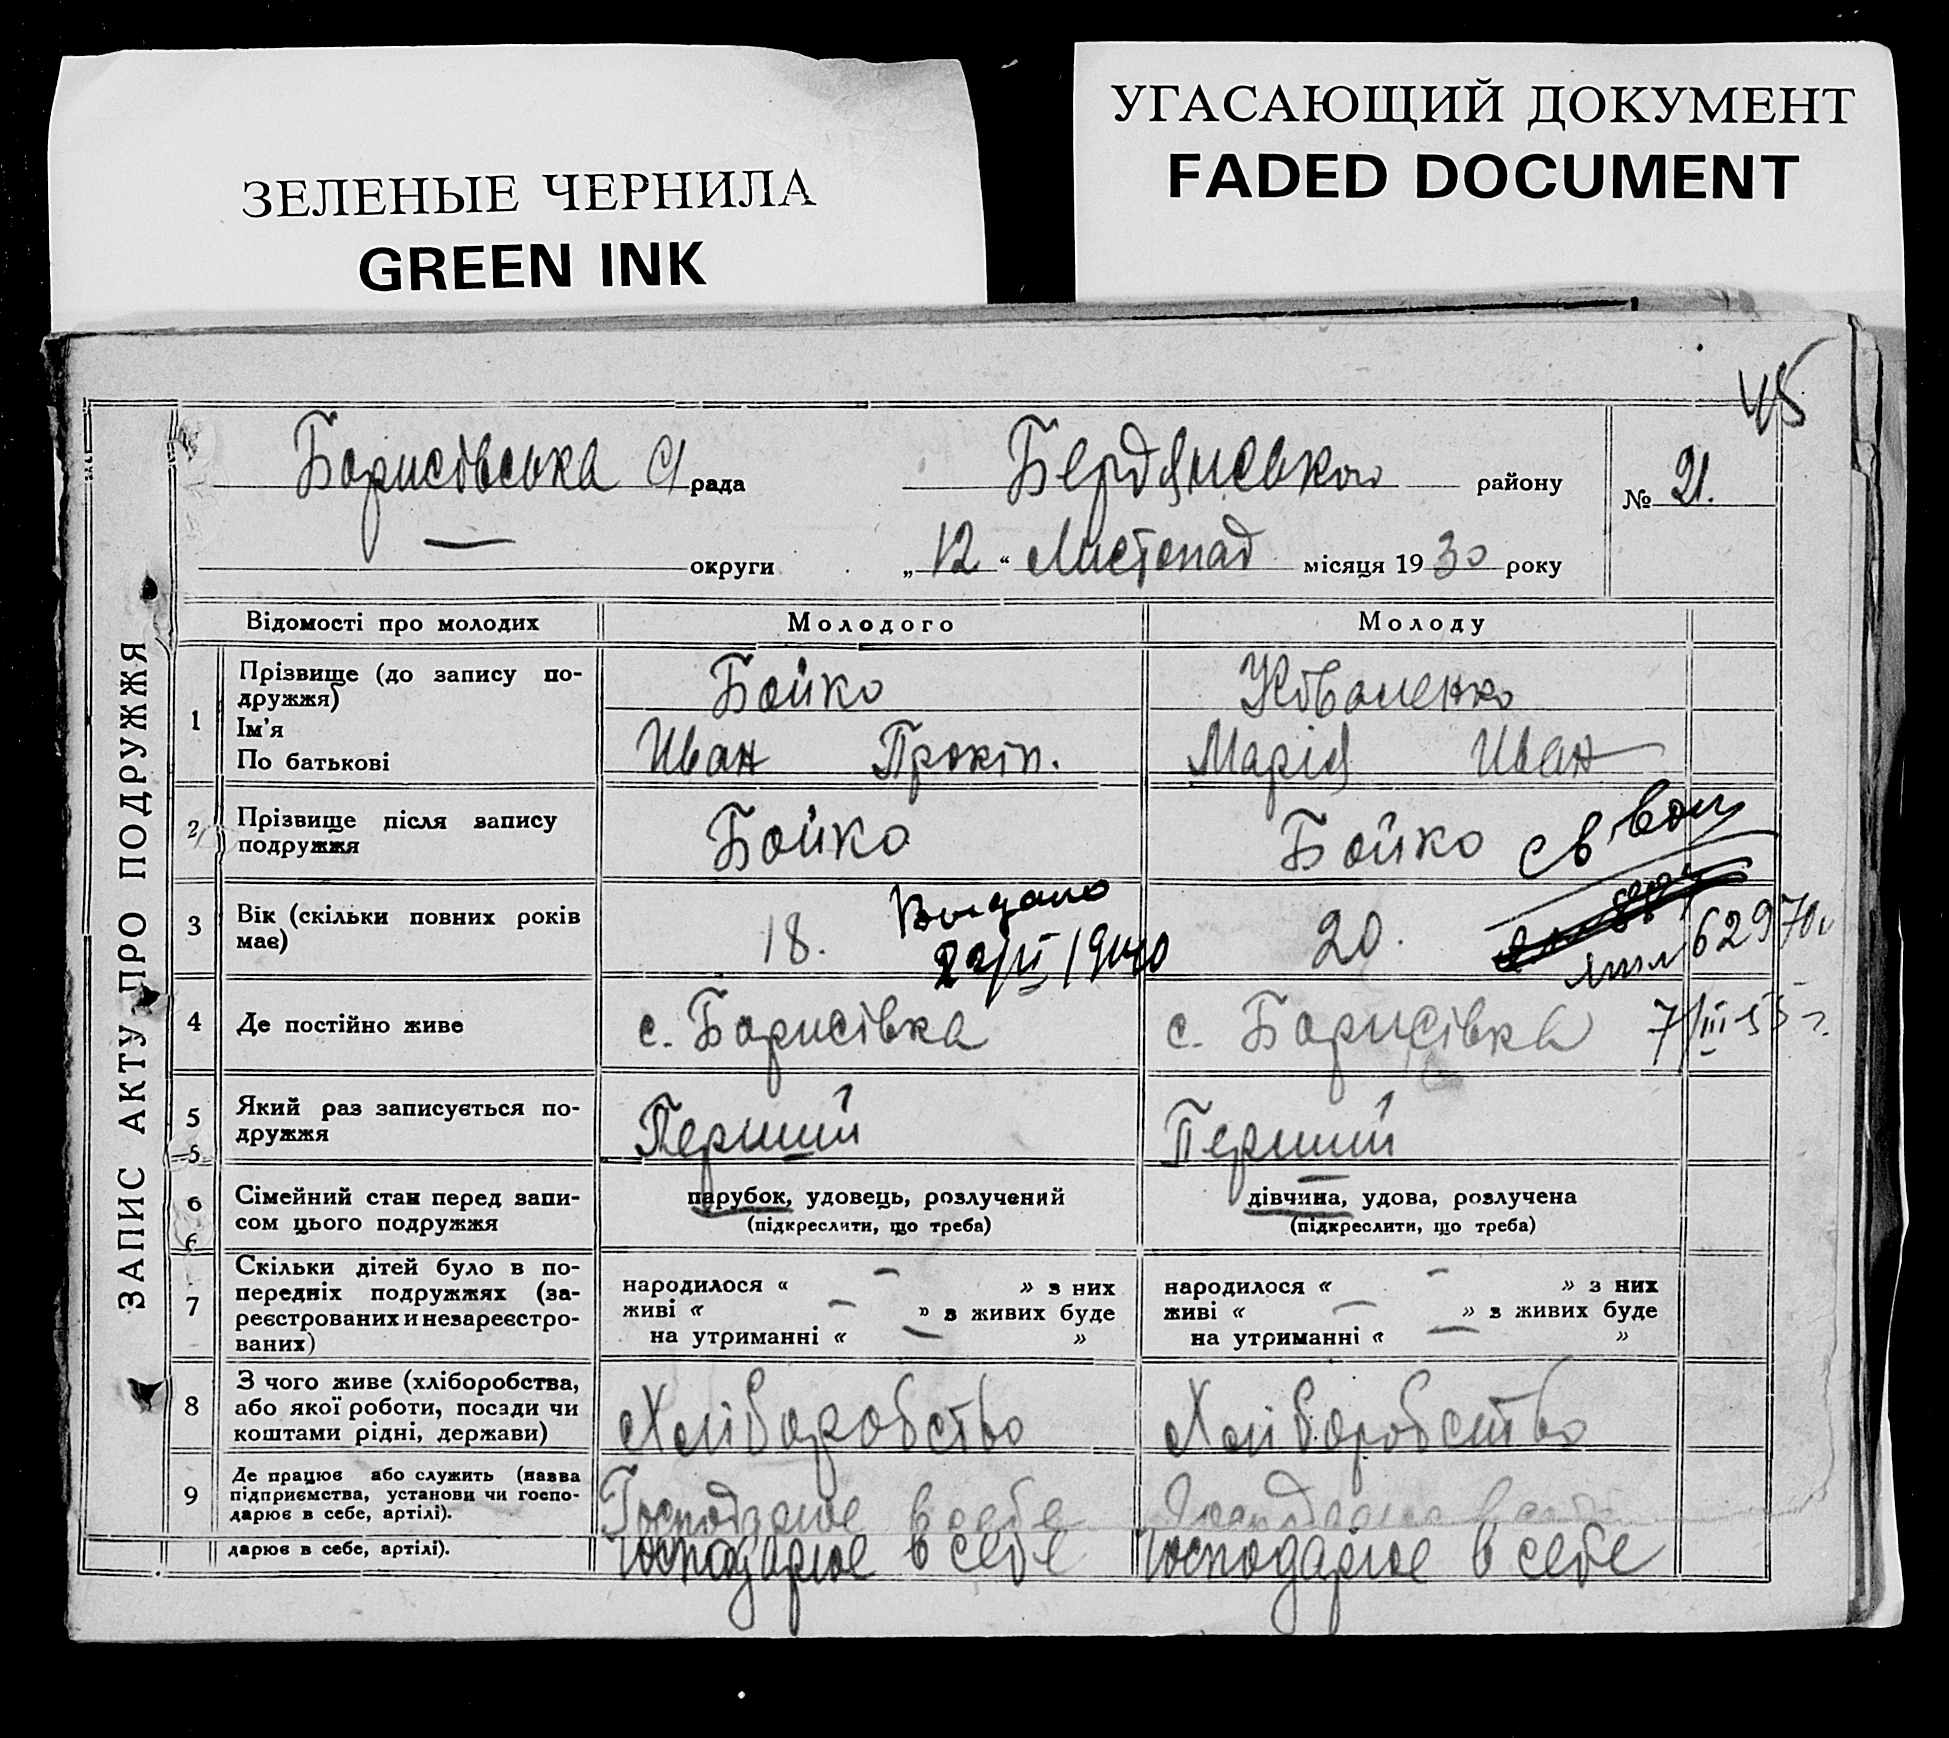 ЗЕЛЕНЫЕ ЧЕРНИЛА
GREEN INK
УГАСАЮЩИЙ ДОКУМЕНТ
FADED DOCUMENT
45
ЗАПИС АКТУ ПРО ПОДРУЖЖЯ
Борисівська с/рада Бердянського району № 21.
— округи „12“ Листопад місяця 1930 року
Відомості про молодих Молодого Молоду
1 Прізвище (до запису по-
дружжя)
Ім'я
По батькові
Бойко
Иван Прокіп.
Марія Иван
2 Прізвище після запису
подружжя
Бойко
Бойко
3 Вік (скільки повних років
має)
18.
Выдано
1940
20.
4 Де постійно живе
с. Борисівка
с. Борисівка
7/III 55 г.
5 Який раз записується по-
дружжя
Перший
Перший
5
6 Сімейний стан перед запи-
сом цього подружжя
парубок, удовець, розлучений
(підкреслити, що треба)
дівчина, удова, розлучена
(підкреслити, що треба)
6
7 Скільки дітей було в по-
передніх подружжях (за-
реєстрованих и незареєстро-
ваних)
народилося « — » з них
живі « — » з живих буде
на утриманні « — »
народилося « — » з них
живі « — » з живих буде
на утриманні « — »
8 З чого живе (хліборобства,
або якої роботи, посади чи
коштами рідні, держави)
Хліборобство
Хліборобство
9 Де працює або служить (назва
підприємства, установи чи госпо-
дарює в себе, артілі).
Господарює в себе
Господарює в себе
дарює в себе, артілі).
господарює в себе
господарює в себе